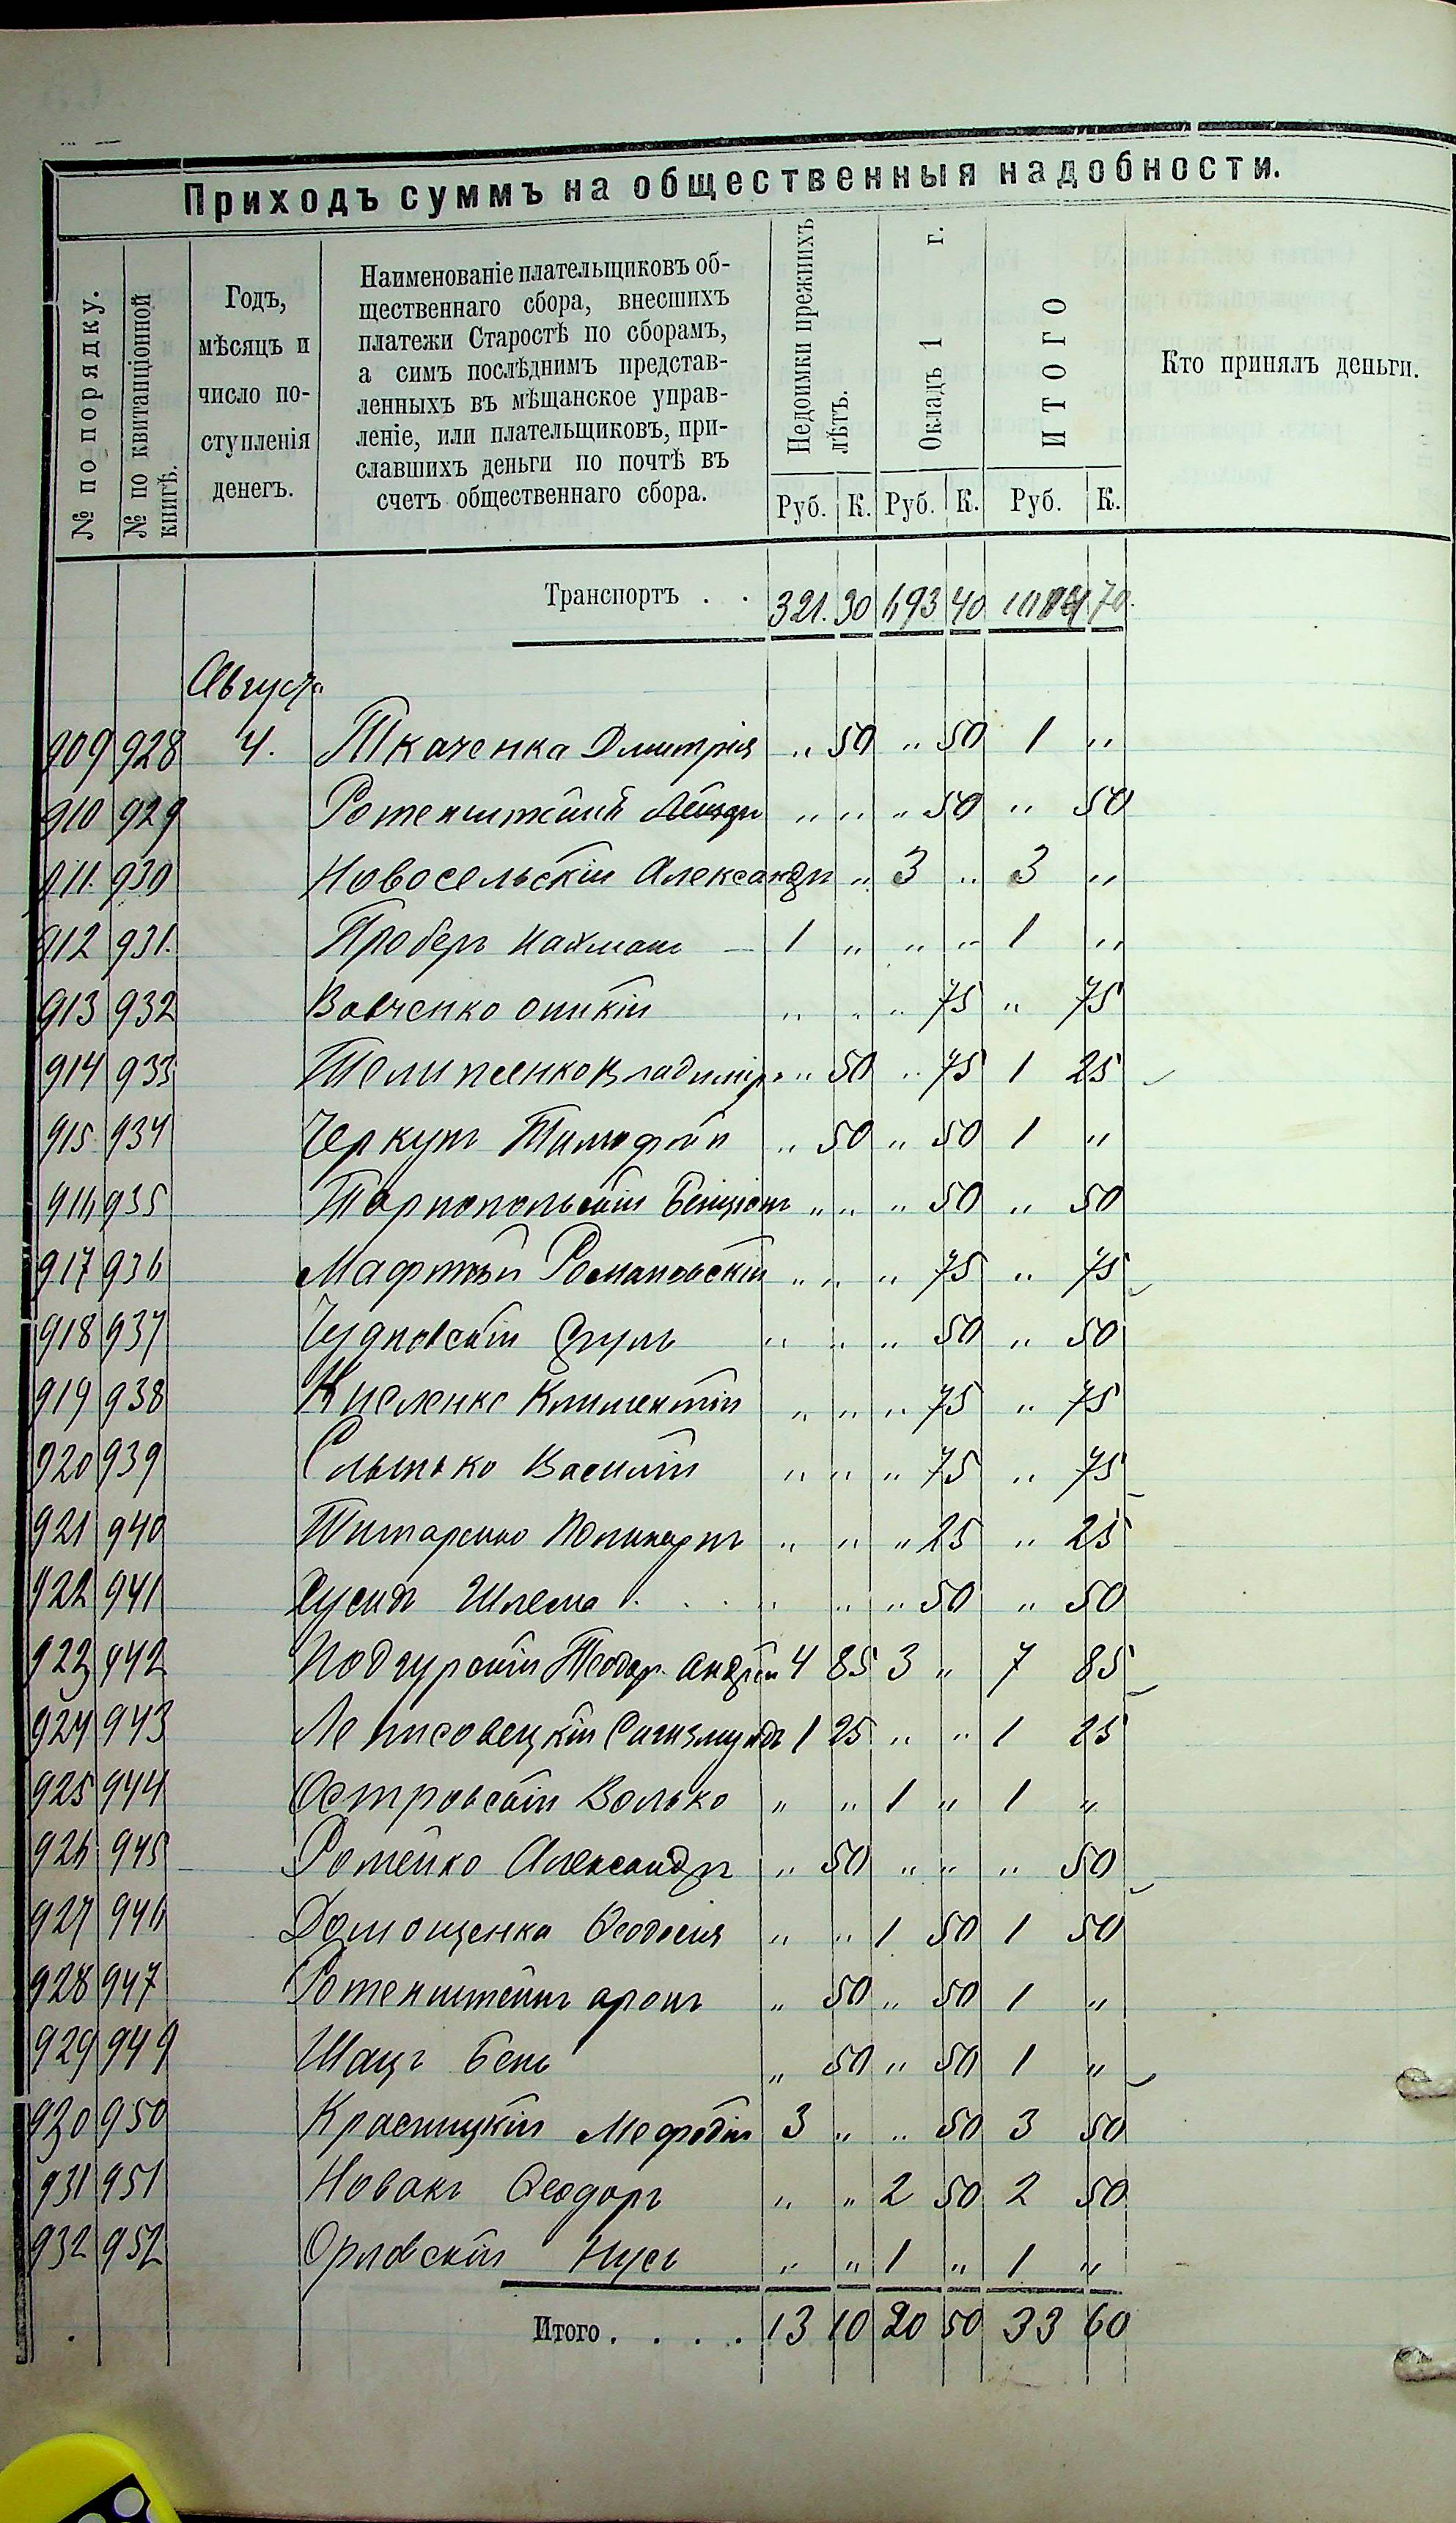 Приходъ суммъ на общественныя надобности.
№ по порядку.
№ по квитанціонной
книгѣ.
Годъ,
мѣсяцъ и
число по-
ступленія
денегъ.
Наименованіе плательщиковъ об-
щественнаго сбора, внесшихъ
платежи Старостѣ по сборамъ,
а симъ послѣднимъ представ-
ленныхъ въ мѣщанское управ-
леніе, или плательщиковъ, при-
славшихъ деньги по почтѣ въ
счетъ общественнаго сбора.
Недоимки прежнихъ
лѣтъ.
Окладъ 1 г.
ИТОГО
Кто принялъ деньги.
Руб. К. Руб. К. Руб. К.
Транспортъ . . 321. 30 693 40 70
Августа
909 928 4. Ткаченка Дмитрія „ 50 „ 50 1 „
910 929 Ротенштейнъ „ „ „ 50 „ 50
911. 930 Новосельскій Александръ „ 3 „ 3 „
912 931. Проберъ Нахманъ — 1 „ „ „ 1 „
913 932 Вовченко „ „ „ 75 „ 75
914 933 Телипенко Владиміръ „ 50 „ 75 1 25
915 934 Черкунъ Тимофѣй „ 50 „ 50 1 „
916 935 Тарнопольскій Бенціонъ „ „ „ 50 „ 50
917 936 Мафтѣй Романовскій „ „ „ 75 „ 75
918 937 Чудновскій Сруль „ „ „ 50 „ 50
919 938 Киеленко Климентій „ „ „ 75 „ 75
920 939 Слынько Василій „ „ „ 75 „ 75
921 940 Титаренко Поликарпъ „ „ „ 25 „ 25
922 941 Хусидъ Шлема . . . „ „ „ 50 „ 50
923 942 Подгурскій Теодор. Андрей 4 85 3 „ 7 85
924 943 Леписовецкій Сигизмундъ 1 25 „ „ 1 25
925 944 Островскій Волько „ „ 1 „ 1 „
926 945 Ротенко Александръ „ 50 „ „ „ 50
927 946 Домощенка Ѳеодосія „ „ 1 50 1 50
928 947 Ротенштейнъ Аронъ „ 50 „ 50 1 „
929 949 Шацъ Бень „ 50 „ 50 1 „
930 950 Красицкій Мефодій 3 „ „ 50 3 50
931 951 Новакъ Ѳеодоръ „ „ 2 50 2 50
932 952 Орловскій Нусъ „ „ 1 „ 1 „
Итого. . . . 13 10 20 50 33 60